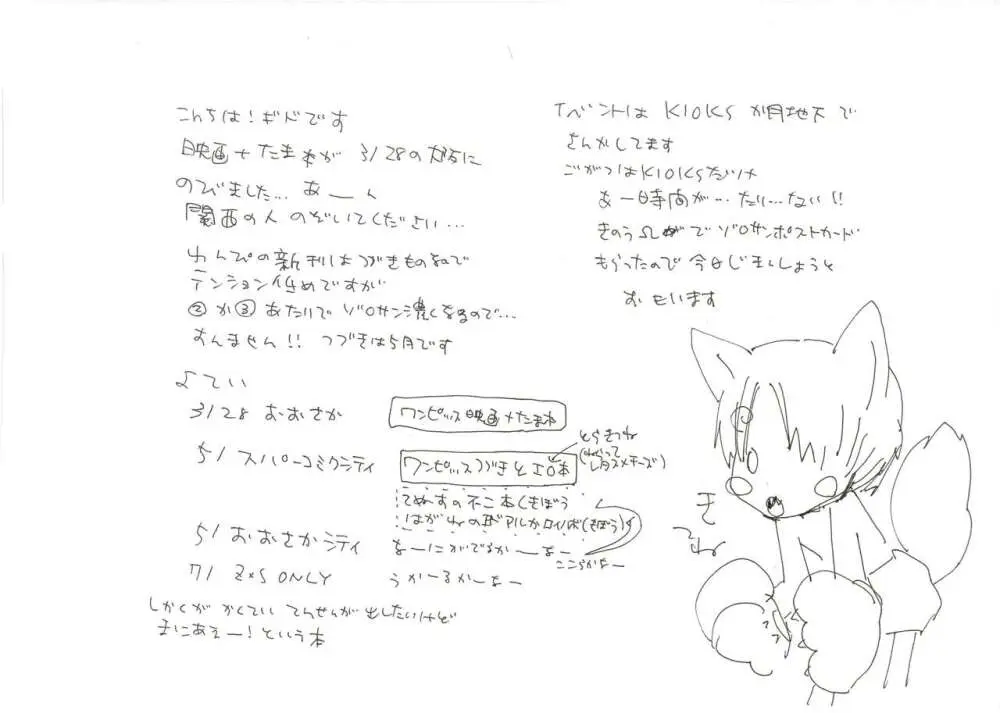 こんちは！ギドです
映画+たま本が 3/28の大阪に
のびました… あーん
関西の人 のぞいてください…
わんぴの新刊はつづきものなので
テンション低めですが
② か ③ あたりで ゾロサン濃くなるので…
すんません!! つづきは5月です
よてい
3/28 おおさか
ワンピッス映画+たま本
5/1 スパーコミクシティ
とらきつね
ワンピッスつづきと
てぬすの不二本(きぼう
はがれんの
(きぼう)
5/1 おおさかシティ
なーにがでるかーなー
ここらかなー
7/1 Z×S ONLY
うかーるかーなー
しかくが かくてい てんせんが 出したいけど
まにあえー！という本
イベントは K10KS が月地下で
さんかしてます
ごがつはK10KSだけ
あー時間が… たり…ない!!
きのう でゾロサンポストカード
もらったので 今日じまんしようと
おもいます
きつね